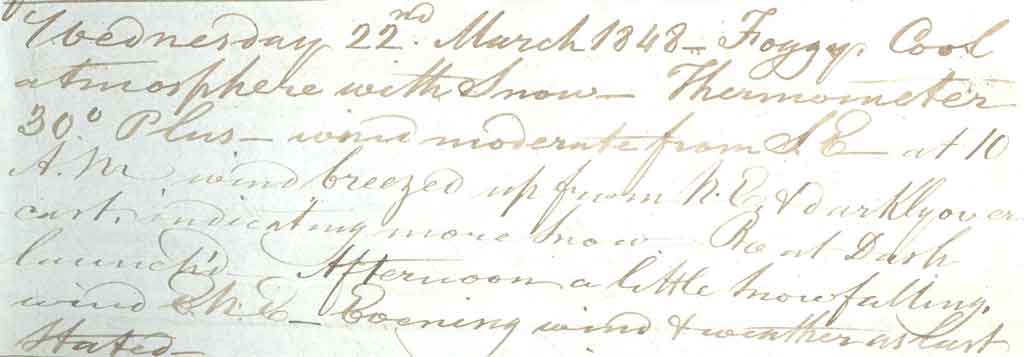 Wednesday 22nd. March 1848 - Foggy. Cool
atmosphere with Snow - Thermometer
30° Plus - wind moderate from S. E - at 10
A. M wind breezed up from N. E, & darkly over
cast, indicating more Snow. Boat Dash
launch'd - Afternoon a little Snow falling.
wind N. E - Evening wind & weather as last
Stated -